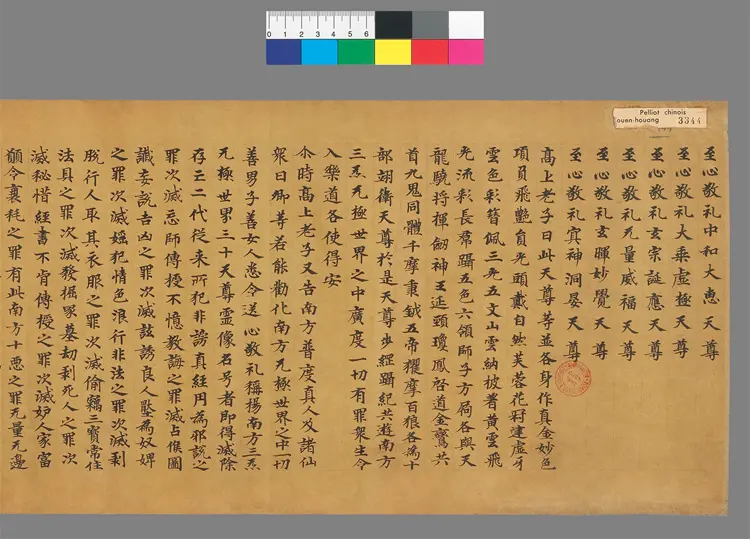 0 1 2 3 4 5 6
Pelliot chinois
ouen-houang 3344
至心敬礼中和大惠天尊
至心敬礼大乘虚極天尊
至心敬礼玄宗誕應天尊
至心敬礼无量威福天尊
至心敬礼玄暉妙覺天尊
至心敬礼寘神洞晏天尊
高上老子曰此天尊等並各身作真金妙色
項負飛艷負光頭戴自然芙蓉花冠建虚牙
雲色彩簪佩三光五文山雲納被著黄雲飛
光流彩長帬躡五色六領師子方局各與天
龍驍将揮劒神王延頸瓊鳳啓道金鸞共
首九鬼同體千摩秉鉞五帝擢摩百狼各為十
部翊衛天尊於是天尊步經躡紀共遊南方
三炁无極世界之中廣度一切有罪衆生令
入樂道各使得安
尒時高上老子又告南方普度真人及諸仙
衆曰卿等若能勸化南方无極世界之中一切
善男子善女人悉令送心敬礼稱揚南方三炁
无極世界三十天尊靈像名号者即得滅除
存亡二代従来所犯非謗真経円為邪説之
罪次滅忘師傳授不憶教誨之罪滅占候圖
讖妄説吉凶之罪次滅詃誘良人墜為奴婢
之罪次滅婬犯情色浪行非法之罪次滅剥
脱行人取其衣服之罪次滅偷竊三寳常住
法具之罪次滅發掘冢墓劫剥死人之罪次
滅秘惜経書不肯傳授之罪次滅妒人家富
願令衰耗之罪有此南方十悪之罪无量无邊